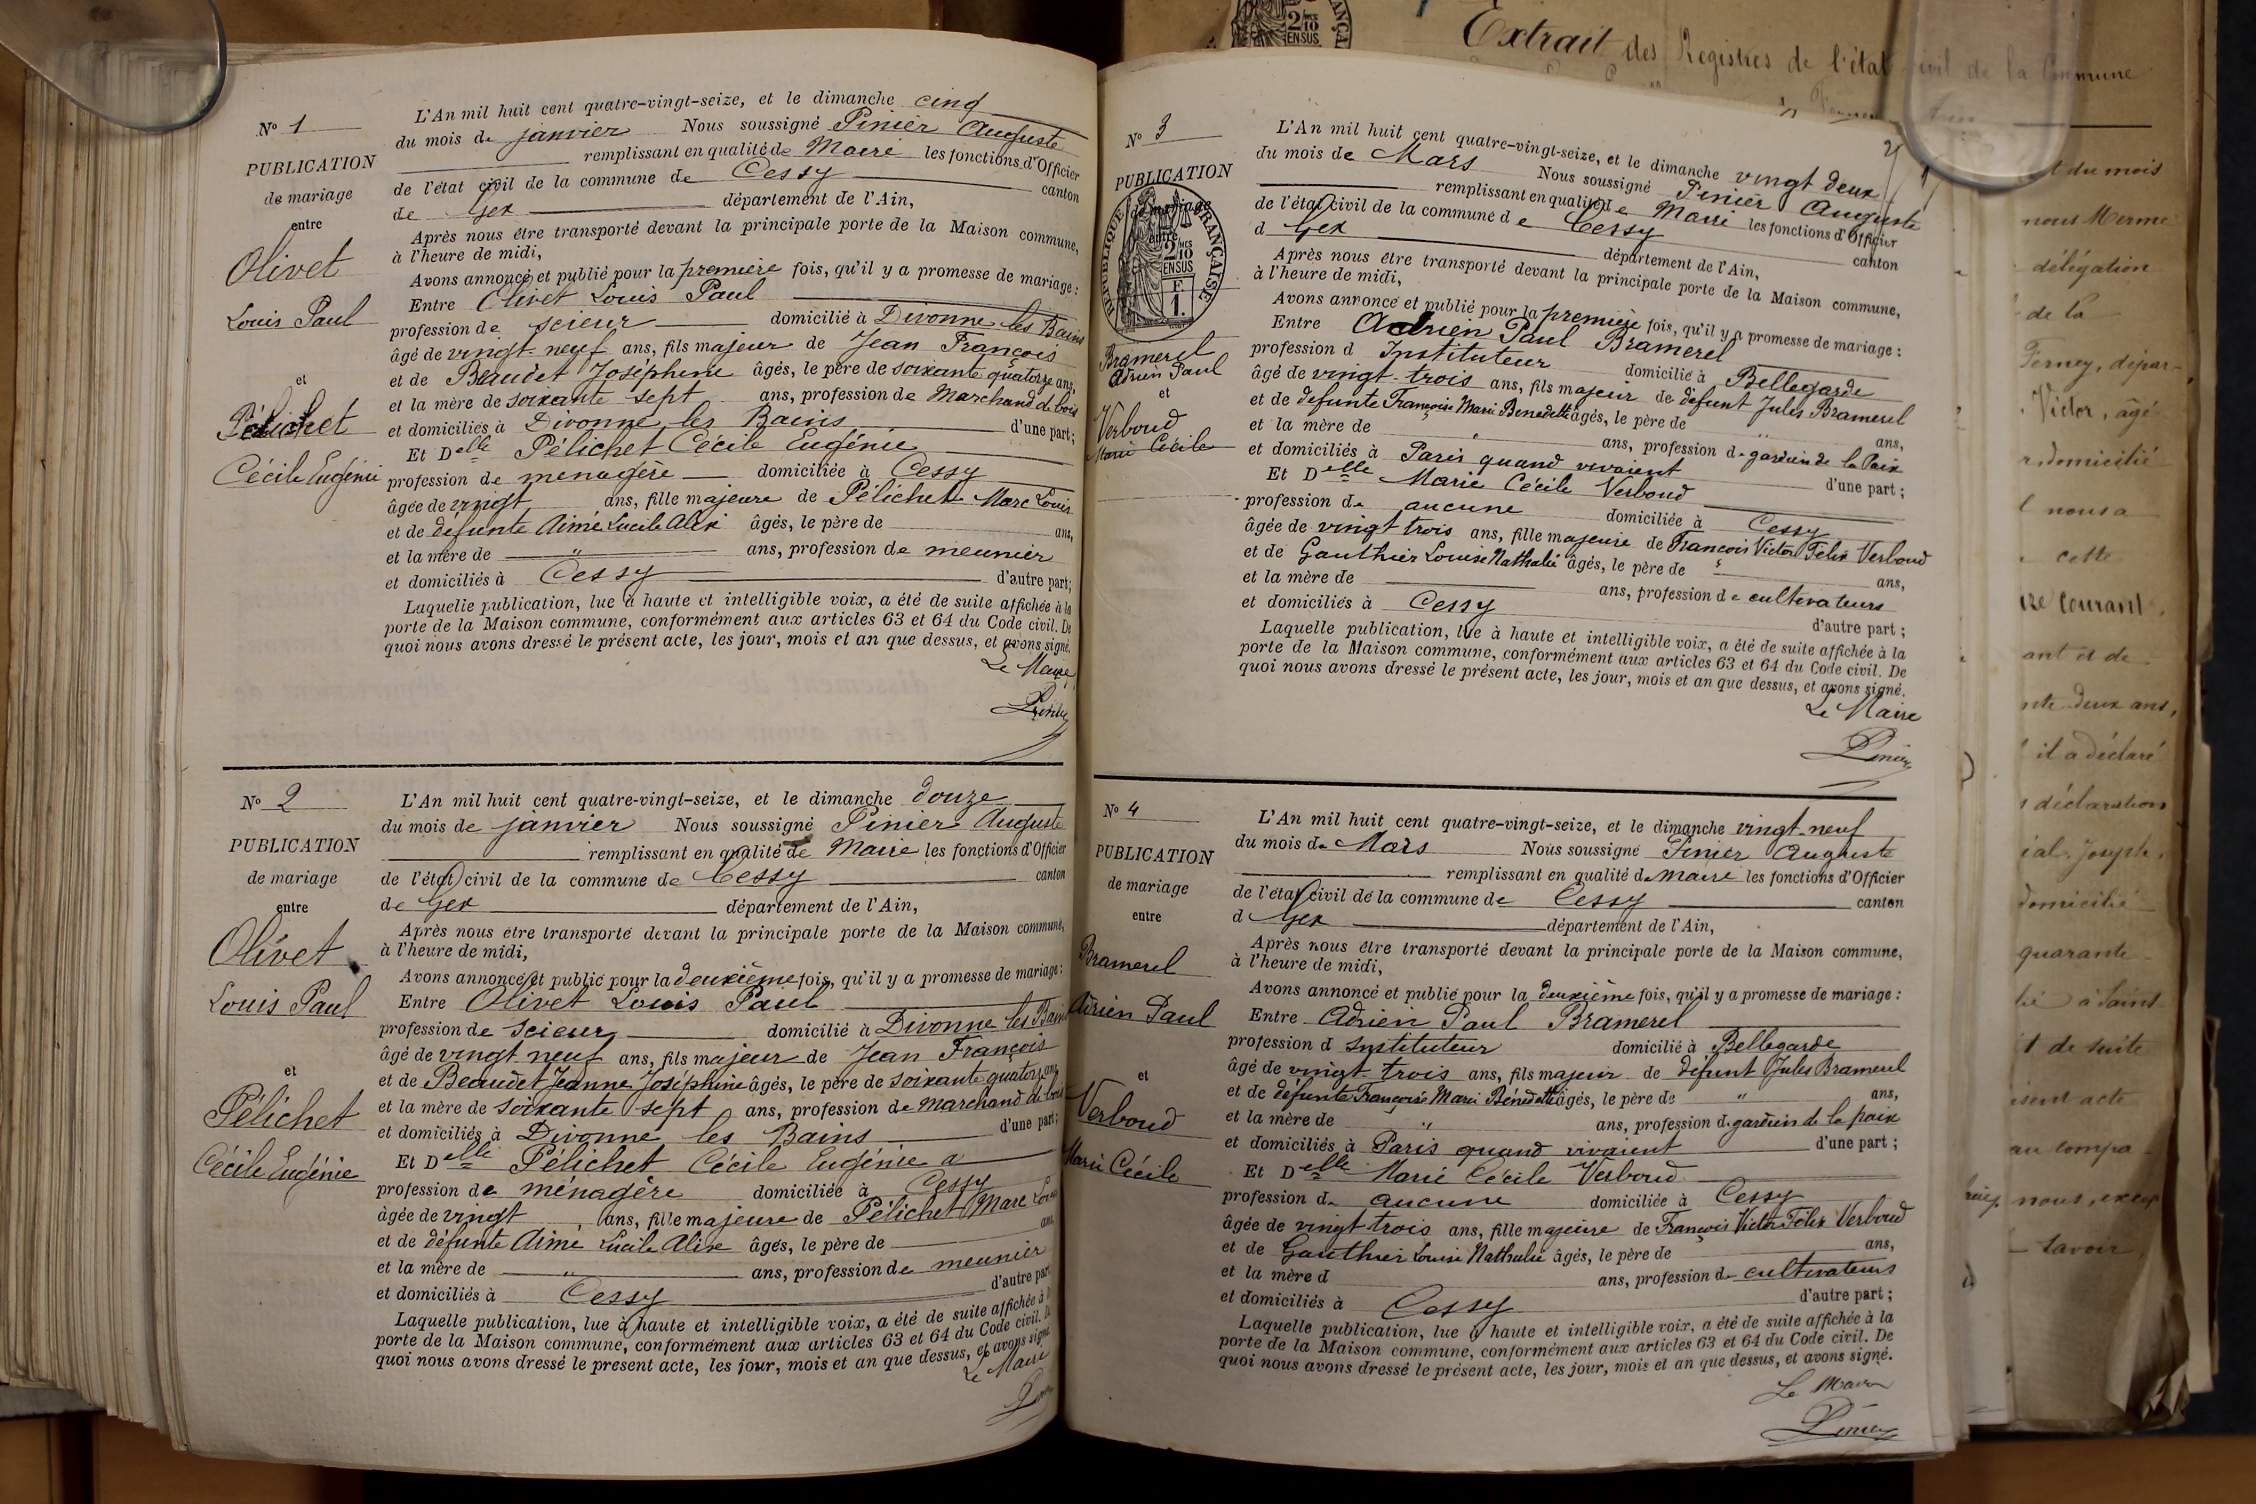 N° 1
PUBLICATION
de mariage
entre
Olivet
Louis Paul
et
Pélichet
Cécile Eugénie
L'An mil huit cent quatre-vingt-seize, et le dimanche cinq
du mois de janvier Nous soussigné Pinier Auguste
remplissant en qualité de Maire les fonctions d'Officier
de l'état civil de la commune de Cessy canton
de Gex département de l'Ain,
Après nous être transporté devant la principale porte de la Maison commune,
à l'heure de midi,
Avons annoncé et publié pour la première fois, qu'il y a promesse de mariage :
Entre Olivet Louis Paul
profession de scieur domicilié à Divonne les Bains
âgé de vingt-neuf ans, fils majeur de Jean François
et de Beaudet Joséphine âgés, le père de soixante quatorze ans,
et la mère de soixante sept ans, profession de Marchand de bois
et domiciliés à Divonne les Bains d'une part ;
Et Delle Pélichet Cécile Eugénie
profession de menagère domiciliée à Cessy
âgée de vingt ans, fille majeure de Pélichet Marc Louis
et de défunte Aimé Lucile Alix âgés, le père de ans,
et la mère de " ans, profession de meunier
et domiciliés à Cessy d'autre part ;
Laquelle publication, lue à haute et intelligible voix, a été de suite affichée à la
porte de la Maison commune, conformément aux articles 63 et 64 du Code civil. De
quoi nous avons dressé le présent acte, les jour, mois et an que dessus, et avons signé.
Le Maire
Pinier
N° 2
PUBLICATION
de mariage
entre
Olivet
Louis Paul
et
Pélichet
Cécile Eugénie
L'An mil huit cent quatre-vingt-seize, et le dimanche douze
du mois de janvier Nous soussigné Pinier Auguste
remplissant en qualité de Maire les fonctions d'Officier
de l'état civil de la commune de Cessy canton
de Gex département de l'Ain,
Après nous être transporté devant la principale porte de la Maison commune,
à l'heure de midi,
Avons annoncé et publié pour la deuxième fois, qu'il y a promesse de mariage :
Entre Olivet Louis Paul
profession de scieur domicilié à Divonne les Bains
âgé de vingt neuf ans, fils majeur de Jean François
et de Beaudet Jeanne Joséphine âgés, le père de soixante quatorze ans,
et la mère de soixante sept ans, profession de marchand de bois
et domiciliés à Divonne les Bains d'une part ;
Et Delle Pélichet Cécile Eugénie
profession de ménagère domiciliée à Cessy
âgée de vingt ans, fille majeure de Pélichet Marc Louis
et de défunte Aimé Lucile Alix âgés, le père de ans,
et la mère de " ans, profession de meunier
et domiciliés à Cessy d'autre part
Laquelle publication, lue à haute et intelligible voix, a été de suite affichée à
porte de la Maison commune, conformément aux articles 63 et 64 du Code civil. De
quoi nous avons dressé le present acte, les jour, mois et an que dessus, et avons signé
Le Maire
N° 3
PUBLICATION
de mariage
entre
RÉPUBLIQUE FRANÇAISE
2/10 MES
EN SUS
F.
1.
Bramerel
Adrien Paul
et
Verboud
Marie Cécile
L'An mil huit cent quatre-vingt-seize, et le dimanche vingt deux
du mois de Mars Nous soussigné Pinier Auguste
remplissant en qualité de Maire les fonctions d'Officier
de l'état civil de la commune de Cessy canton
d Gex département de l'Ain,
Après nous être transporté devant la principale porte de la Maison commune,
à l'heure de midi,
Avons annoncé et publié pour la première fois, qu'il y a promesse de mariage :
Entre Adrien Paul Bramerel
profession d Instituteur domicilié à Bellegarde
âgé de vingt-trois ans, fils majeur de défunt Jules Bramerel
et de defunte Françoise Marie Benedette âgés, le père de " ans,
et la mère de " ans, profession de gardien de la Paix
et domiciliés à Paris quand vivaient d'une part ;
Et Delle Marie Cécile Verboud
profession de aucune domiciliée à Cessy
âgée de vingt trois ans, fille majeure de François Victor Félix Verboud
et de Gauthier Louise Nathalie âgés, le père de ans,
et la mère de ans, profession de cultivateurs
et domiciliés à Cessy d'autre part ;
Laquelle publication, lue à haute et intelligible voix, a été de suite affichée à la
porte de la Maison commune, conformément aux articles 63 et 64 du Code civil. De
quoi nous avons dressé le présent acte, les jour, mois et an que dessus, et avons signé.
Le Maire
Pinier
N° 4
PUBLICATION
de mariage
entre
Bramerel
Adrien Paul
et
Verboud
Marie Cécile
L'An mil huit cent quatre-vingt-seize, et le dimanche vingt-neuf
du mois de Mars Nous soussigné Pinier Auguste
remplissant en qualité de maire les fonctions d'Officier
de l'état civil de la commune de Cessy canton
d Gex département de l'Ain,
Après nous être transporté devant la principale porte de la Maison commune,
à l'heure de midi,
Avons annoncé et publié pour la deuxième fois, qu'il y a promesse de mariage :
Entre Adrien Paul Bramerel
profession d Instituteur domicilié à Bellegarde
âgé de vingt-trois ans, fils majeur de défunt Jules Bramerel
et de défunte Françoise Marie Bénédette âgés, le père de " ans,
et la mère de " ans, profession de gardien de la paix
et domiciliés à Paris quand vivaient d'une part ;
Et Delle Marie Cécile Verboud
profession de aucune domiciliée à Cessy
âgée de vingt-trois ans, fille majeure de François Victor Félix Verboud
et de Gauthier Louise Nathalie âgés, le père de ans,
et la mère d ans, profession de cultivateurs
et domiciliés à Cessy d'autre part ;
Laquelle publication, lue à haute et intelligible voix, a été de suite affichée à la
porte de la Maison commune, conformément aux articles 63 et 64 du Code civil. De
quoi nous avons dressé le présent acte, les jour, mois et an que dessus, et avons signé.
Le Maire
Pinier
2/10 MES
EN SUS
Extrait des Registres de l'état civil de la Commune
du mois
nous Merme
délégation
de la
Ferney, dépar-
Victor, âgé
domicilié
nous a
cette
courant,
ant et de
nte deux ans,
il a déclaré
déclaration
Joseph,
domicilié
quarante
à Saint
et de suite
acte
au compa-
nous, excep
savoir